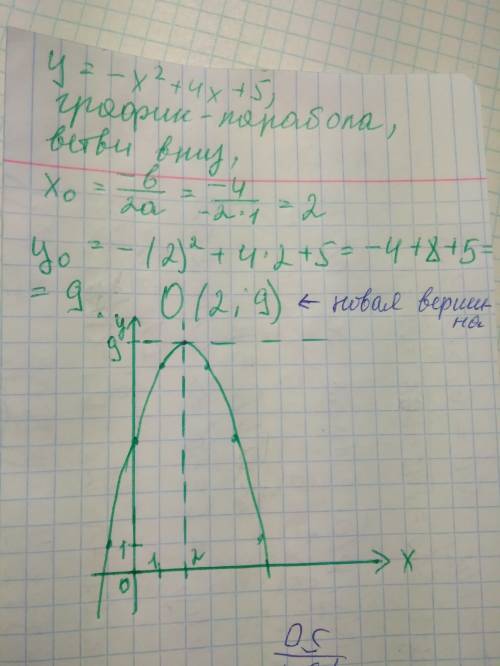 y = -x² + 4x + 5,
график - парабола,
ветви вниз,
x₀ = -b/2a = -4/-2·1 = 2
y₀ = -(2)² + 4·2 + 5 = -4 + 8 + 5 =
= 9. O(2; 9) ← новая верши-
на
y
9
1
1 2
0
x
05